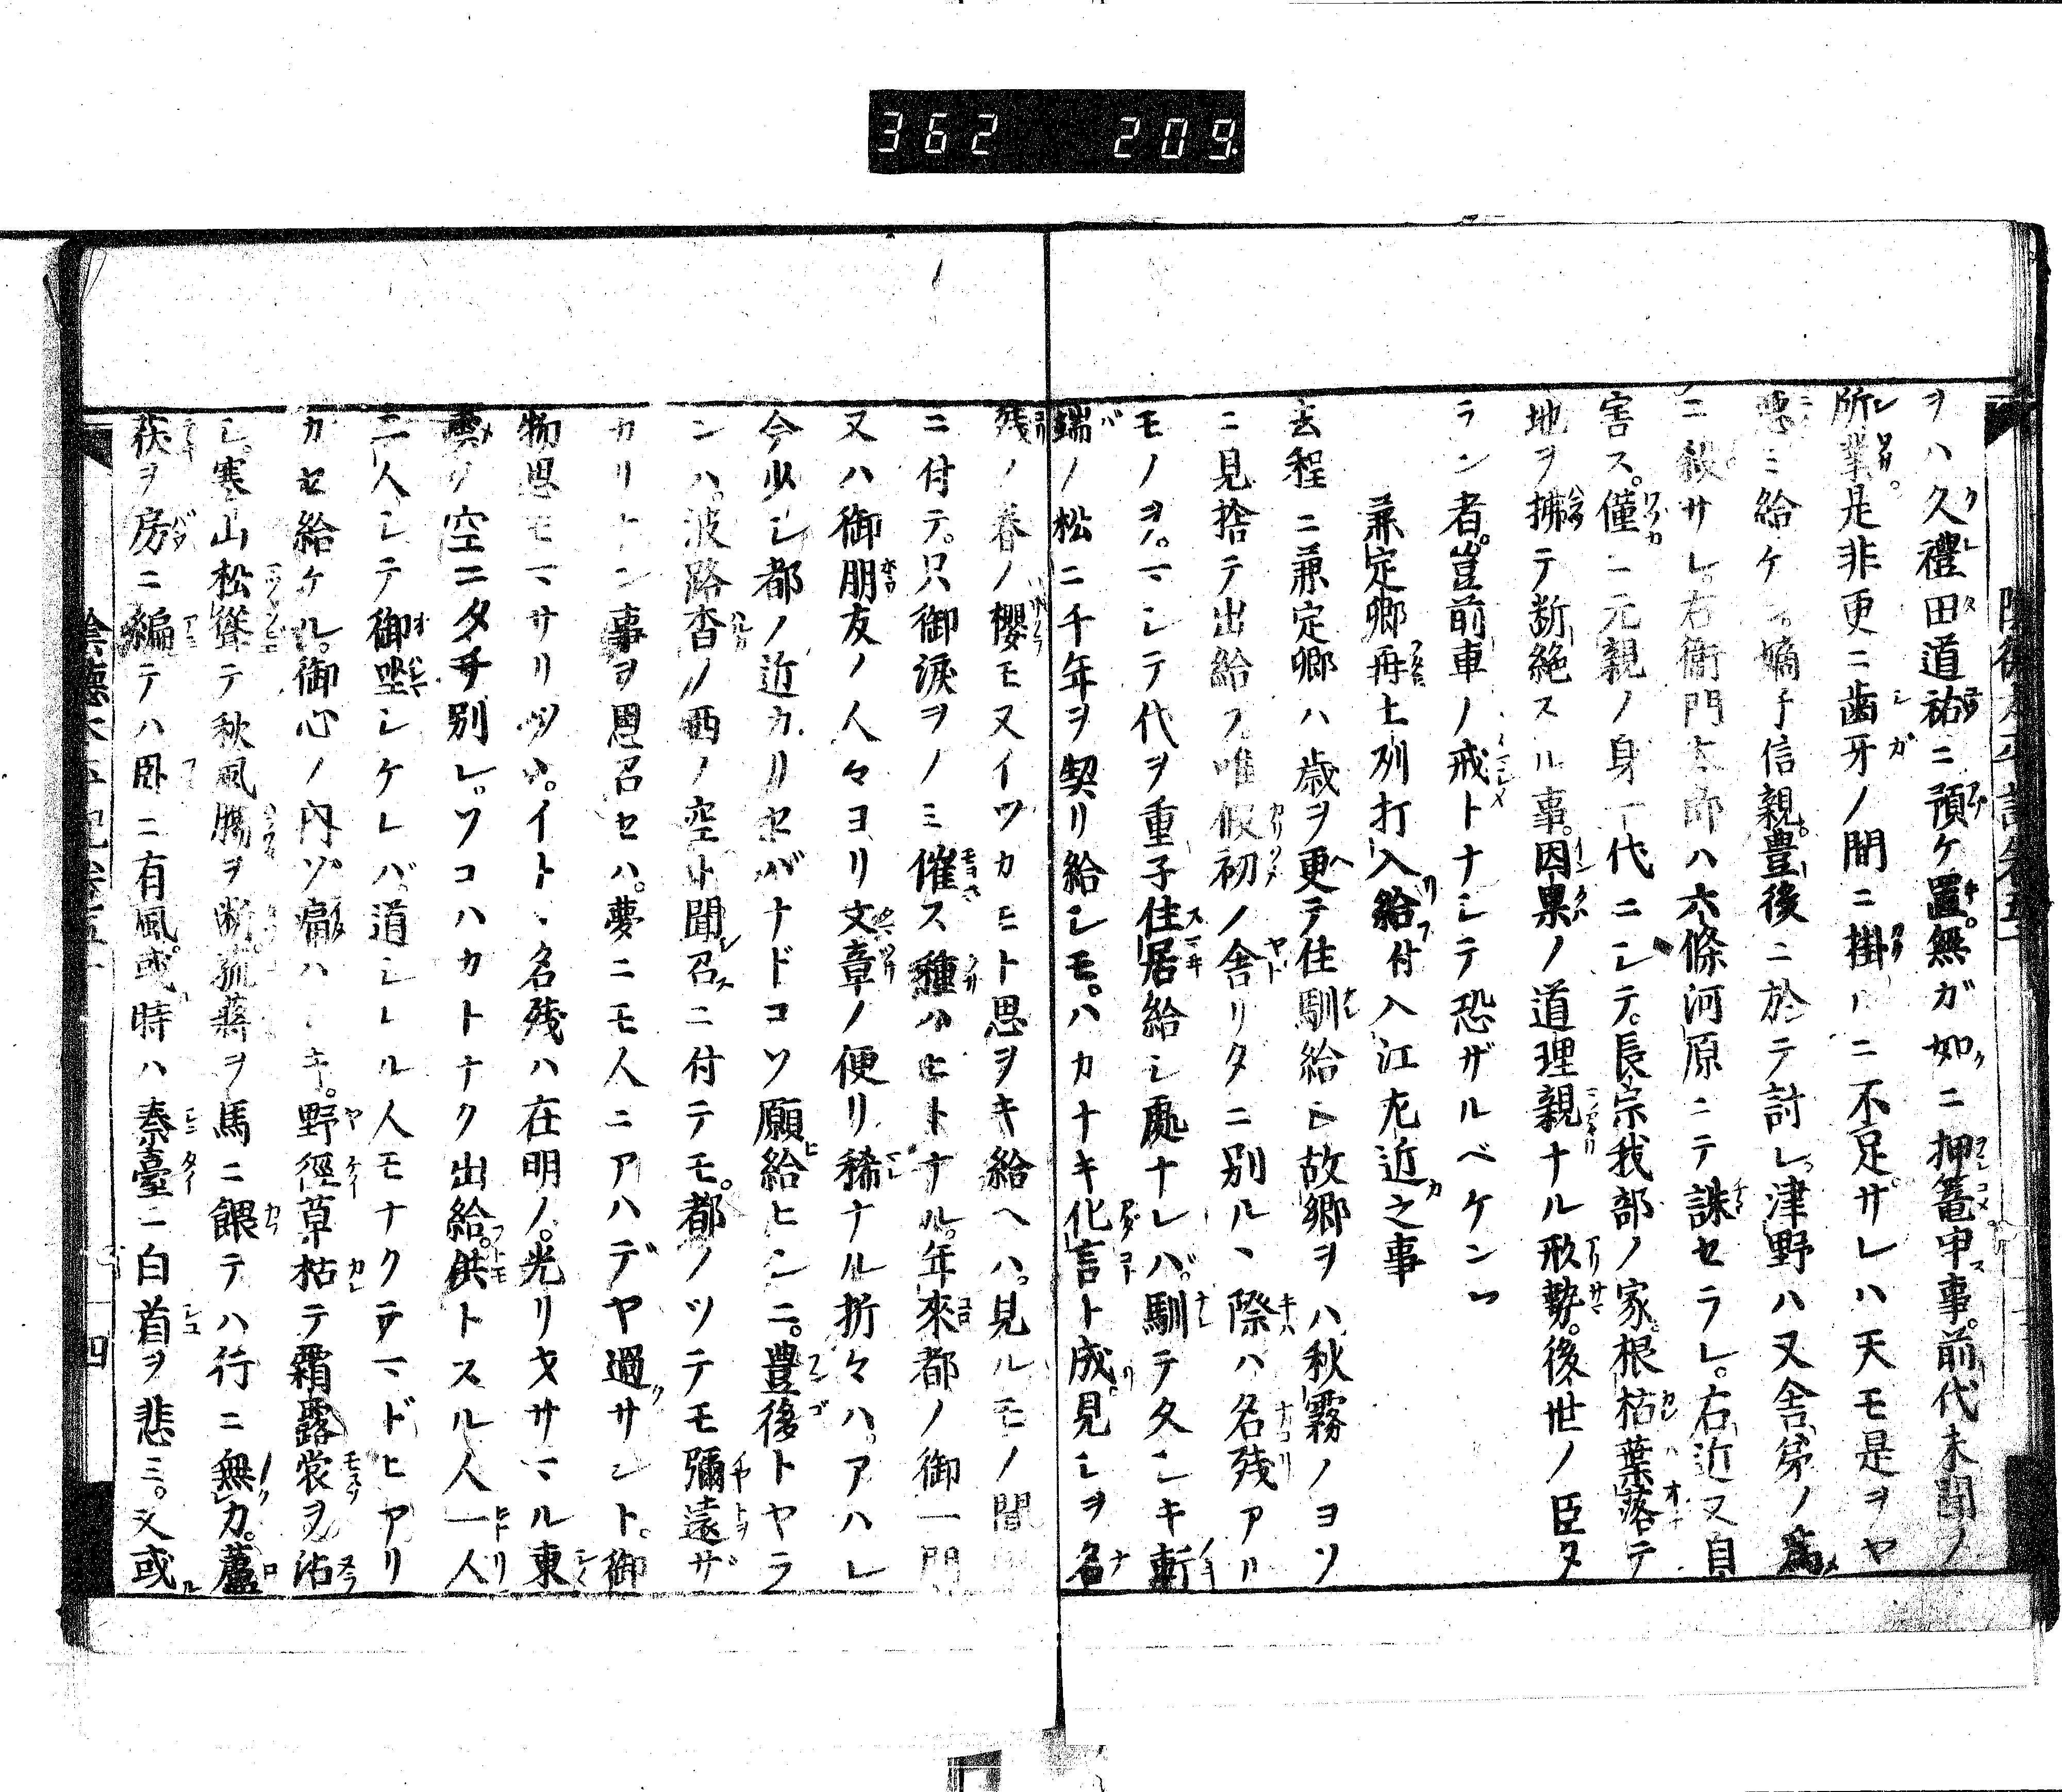 362 209.
ヲハ久禮田道祐ニ預ケ置。無ガ如クニ押篭申事。前代未聞ノ
所業。是非更ニ歯牙ノ間ニ掛ルニ不足。サレハ天モ是ヲヤ
悪ミ給ケン嫡子信親。豊後ニ於テ討レ。津野ハ又舎弟ノ為
ニ殺サレ。右衛門太郎ハ六條河原ニテ誅セラレ。右近又自
害ス。僅ニ元親ノ身一代ニシテ。長宗我部ノ家。根枯葉落テ
地ヲ拂テ断絶スル事。因果ノ道理親ナル形勢。後世ノ臣タ
ラン者。豈前車ノ戒トナシテ恐ザルベケンヤ
兼定卿再土列打入給付入江左近之事
去程ニ兼定卿ハ歳ヲ更テ住馴給シ故郷ヲハ秋霧ノヨソ
ニ見捨テ出給フ。唯假初ノ舎リタニ別ルヽ際ハ名残アル
モノヲ。マシテ代ヲ重子住居給シ處ナレバ。馴テタシキ斬
端ノ松ニ千年ヲ契リ給シモ。ハカナキ化言ト成。見シヲ名
残ノ春ノ櫻モ又イツカニト思ヲキ給ヘハ。見ルモノ聞
ニ付テ。只御涙ヲノミ催ス種ハヒトナル。年來都ノ御一門
又ハ御朋友ノ人々ヨリ文章ノ便リ稀ナル折々ハ。アハレ
今少シ都ノ近カリセバナドコソ願給ヒシニ。豊後トヤラ
ンハ。波路杳ノ西ノ空ト聞召ニ付テモ。都ノツテモ彌遠ザ
カリナン事ヲ思召セハ。夢ニモ人ニアハデヤ過サント。御
物思モマサリツヽ。イトヽ名残ハ在明ノ。光リヲサマル東
雲ノ空ニタチ別レ。ソコハカトナク出給。供トスル人一人
二人シテ御坐シケレバ。道シレル人モナクテマドヒアリ
カセ給ケル。御心ノ内ソ痛ハシキ。野徑草枯テ霜露裳ヲ沾
シ。寒山松聳テ秋風膓ヲ断。孤蒋ヲ馬ニ餵テハ行ニ無力。蘆
荻ヲ房ニ編テハ卧ニ有風。或時ハ秦臺ニ白首ヲ悲ミ。又或
陰德太平記卷五十 四